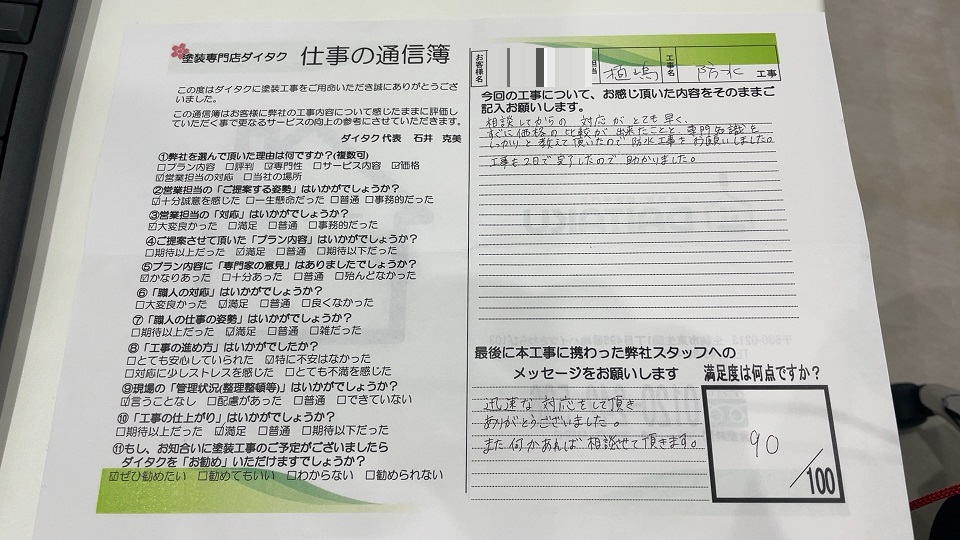 塗装専門店ダイタク 仕事の通信簿
この度はダイタクに塗装工事をご用命いただき誠にありがとうござ
いました。
この通信簿はお客様に弊社の工事内容について感じたままに評価し
ていただく事で更なるサービスの向上の参考にさせていただきます。
ダイタク代表 石井 克美
①弊社を選んで頂いた理由は何ですか?(複数可)
□プラン内容 □評判 ☑専門性 □サービス内容 ☑価格
☑営業担当の対応 □当社の場所
②営業担当の「ご提案する姿勢」はいかがでしょうか?
☑十分誠意を感じた □一生懸命だった □普通 □事務的だった
③営業担当の「対応」はいかがでしょうか?
☑大変良かった □満足 □普通 □事務的だった
④ご提案させて頂いた「プラン内容」はいかがでしょうか?
□期待以上だった ☑満足 □普通 □期待以下だった
⑤プラン内容に「専門家の意見」はありましたでしょうか?
☑かなりあった □十分あった □普通 □殆んどなかった
⑥「職人の対応」はいかがでしょうか?
□大変良かった ☑満足 □普通 □良くなかった
⑦「職人の仕事の姿勢」はいかがでしょうか?
□期待以上だった ☑満足 □普通 □雑だった
⑧「工事の進め方」はいかがでしたか?
□とても安心していられた ☑特に不安はなかった
□対応に少しストレスを感じた □とても不満を感じた
⑨現場の「管理状況(整理整頓等)」はいかがでしょうか?
☑言うことなし □配慮があった □普通 □できていない
⑩「工事の仕上がり」はいかがでしょうか?
□期待以上だった ☑満足 □普通 □期待以下だった
⑪もし、お知合いに塗装工事のご予定がございましたら
ダイタクを「お勧め」いただけますでしょうか?
☑ぜひ勧めたい □勧めてもいい □わからない □勧められない
お客様名 担当 植嶋 工事名 防水 工事
今回の工事について、お感じ頂いた内容をそのままご
記入お願いします。
相談してからの 対応が とても早く、
すぐに価格の比較が出来たことと、専門知識を
しっかりと教えて頂いたので防水工事をお願いしました。
工事も2日で完了したので助かりました。
最後に本工事に携わった弊社スタッフへの
メッセージをお願いします
迅速な対応をして頂き
ありがとうございました。
また何かあれば相談させて頂きます。
満足度は何点ですか?
90
/100